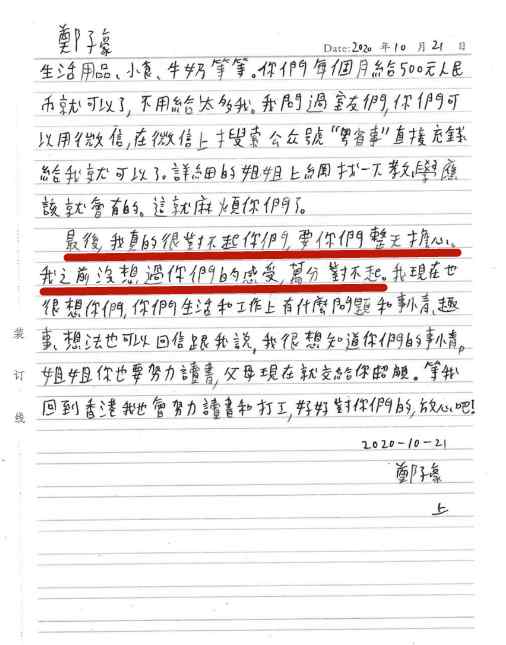 鄭子豪
Date: 2020 年 10 月 21 日
生活用品、小食、牛奶等等。你們每個月給500元人民
币就可以了,不用給太多我。我問過室友們,你們可
以用微信,在微信上搜索公众號“粵省事”直接充錢
給我就可以了。詳細的姐姐上網找一下教學應
該就會有的。這就麻煩你們了。
最後,我真的很對不起你們,要你們整天擔心。
我之前沒想過你們的感受,萬分對不起。我現在也
很想你們,你們生活和工作上有什麼問題和事情、趣
事、想法也可以回信跟我說,我很想知道你們的事情。
姐姐你也要努力讀書,父母現在就交給你照顧。等我
回到香港我也會努力讀書和打工,好好對你們的,放心吧!
2020-10-21
鄭子豪
上
装
订
线